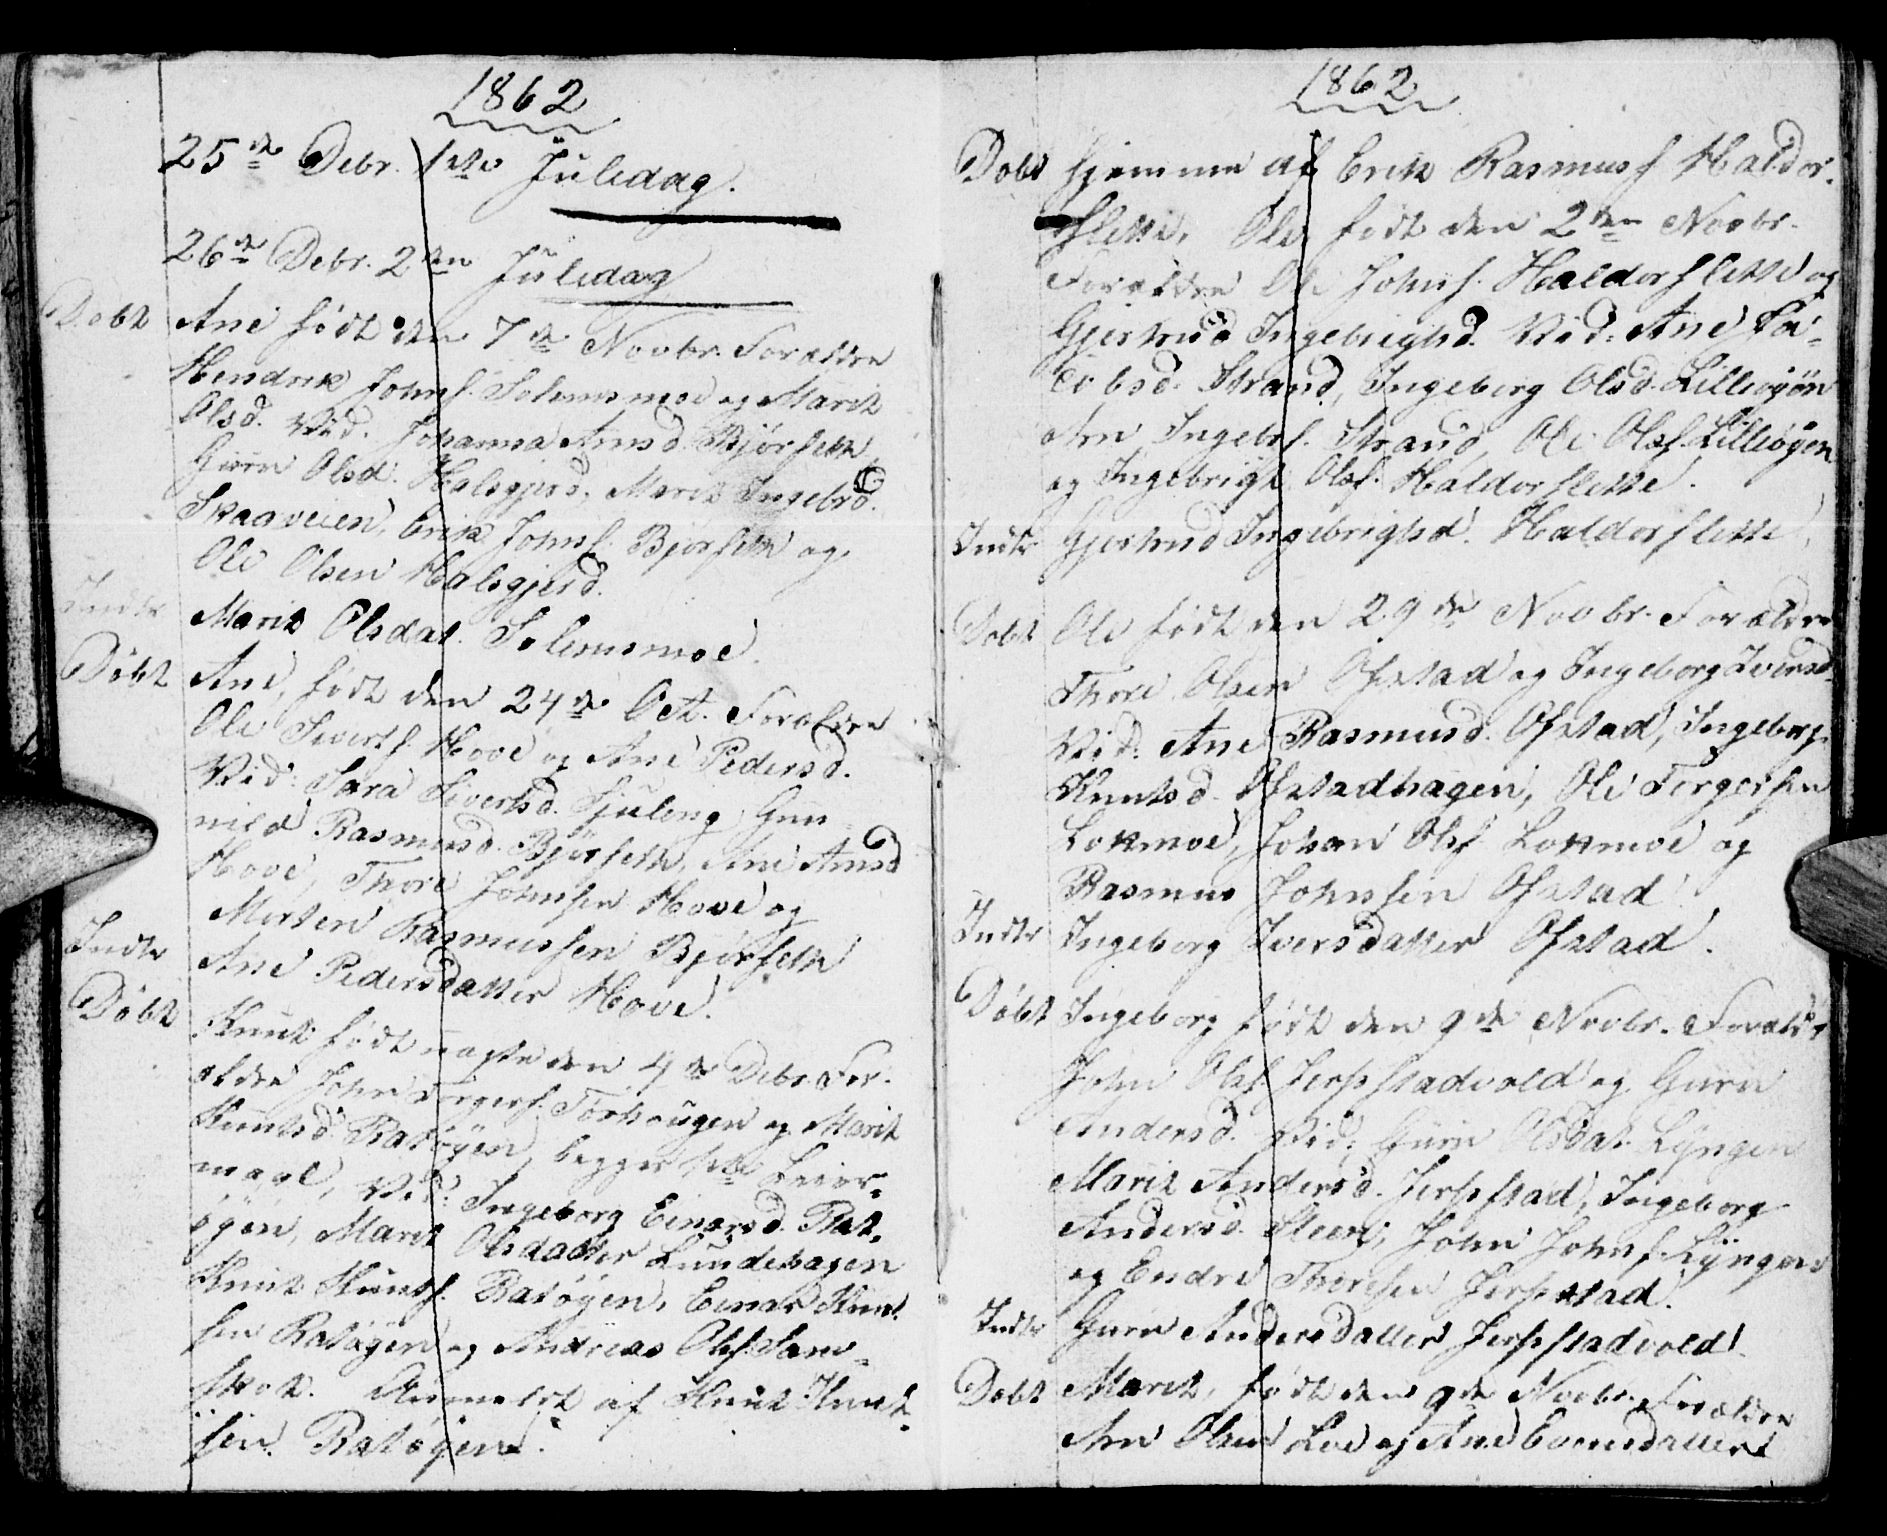 1862
25de Debr. 1ste Juledag.
26de Debr. 2den Juledag
Døbt Ane født den 7de Novbr. Forældre
Hendrik Johnsf. Solemsmoe og Marit
Olsd. Vid. Johanna Arnsd. Bjørseth,
Guru Olsd. Halsgjerd, Marit Ingebrd.
Skaaveien, Erik Johnsf. Bjørseth og
Ole Olsen Halsgjerd.
Indtr Marit Olsdat. Solemsmoe.
Døbt Ane, født den 24de Oct. Forældre
Ole Sivertsf. Hove og Ane Pedersd.
Vid: Sara Sivertsd. Gun
nild Rasmusd. Bjørseth, Ane Arnsd
Hove, Thore Johnsen Hove og
Morten Rasmussen Bjørseth
Indtr Ane Pedersdatter Hove.
Døbt Knut født uægte den 4de Debr. For.
ældre John Torgersf. Torhaugen og Marit
Knutsd. Ratøyen, begges 1ste Leier-
maal, Vid: Ingeborg Einarsd. Rat-
øyen, Marit Olsdatter Lundehagen
Knut Knutsf. Ratøyen, Einar Knut
sen Ratøyen og Andreas Olsf.
Anmeldt af Knut Knut-
sen Ratøyen.
1862
Døbt hjemme af Erik Rasmusf Haldor.
slette, Ole født den 2den Novbr.
Forældre Ole Johnsf. Haldorslette og
Gjertrud Ingebrigtsd. Vid: Ane Ja-
cobsd. Strand, Ingeborg Olsd. Lilleøyen
Arn Ingebrf. Strand, Ole Olsf. Lilleøyen
og Ingebrigt Olsf. Haldorslette.
Indtr Gjertrud Ingebrigtsd. Haldorslette.
Døbt Ole født den 29de Novbr. Forældre
Thore Olsen Ofstad og Ingeborg Iversd.
Vid. Ane Rasmusd. Ofstad, Ingeborg
Knutsd. Ofstadhagen, Ole Torgersen
Lokmoe, Johan Olsf Lokmoe og
Rasmus Johnsen Ofstad
Indtr Ingeborg Iversdatter Ofstad.
Døbt Ingeborg født den 9de Novbr. Foræld:
John Olsf. Jerpstadvold og Guru
Andersd. Vid: Guru Olsdat. Lyngen
Marit Andersd. Jerpstad, Ingeborg
Andersd. Steen, John Johnsf. Lyngen
og Endre Thoresen Jerpstad.
Indtr Guru Andersdatter Jerpstadvold.
Døbt Marit, født den 9de Novbr. Forældre
Arn Olsen Loe og Ane Evensdatter